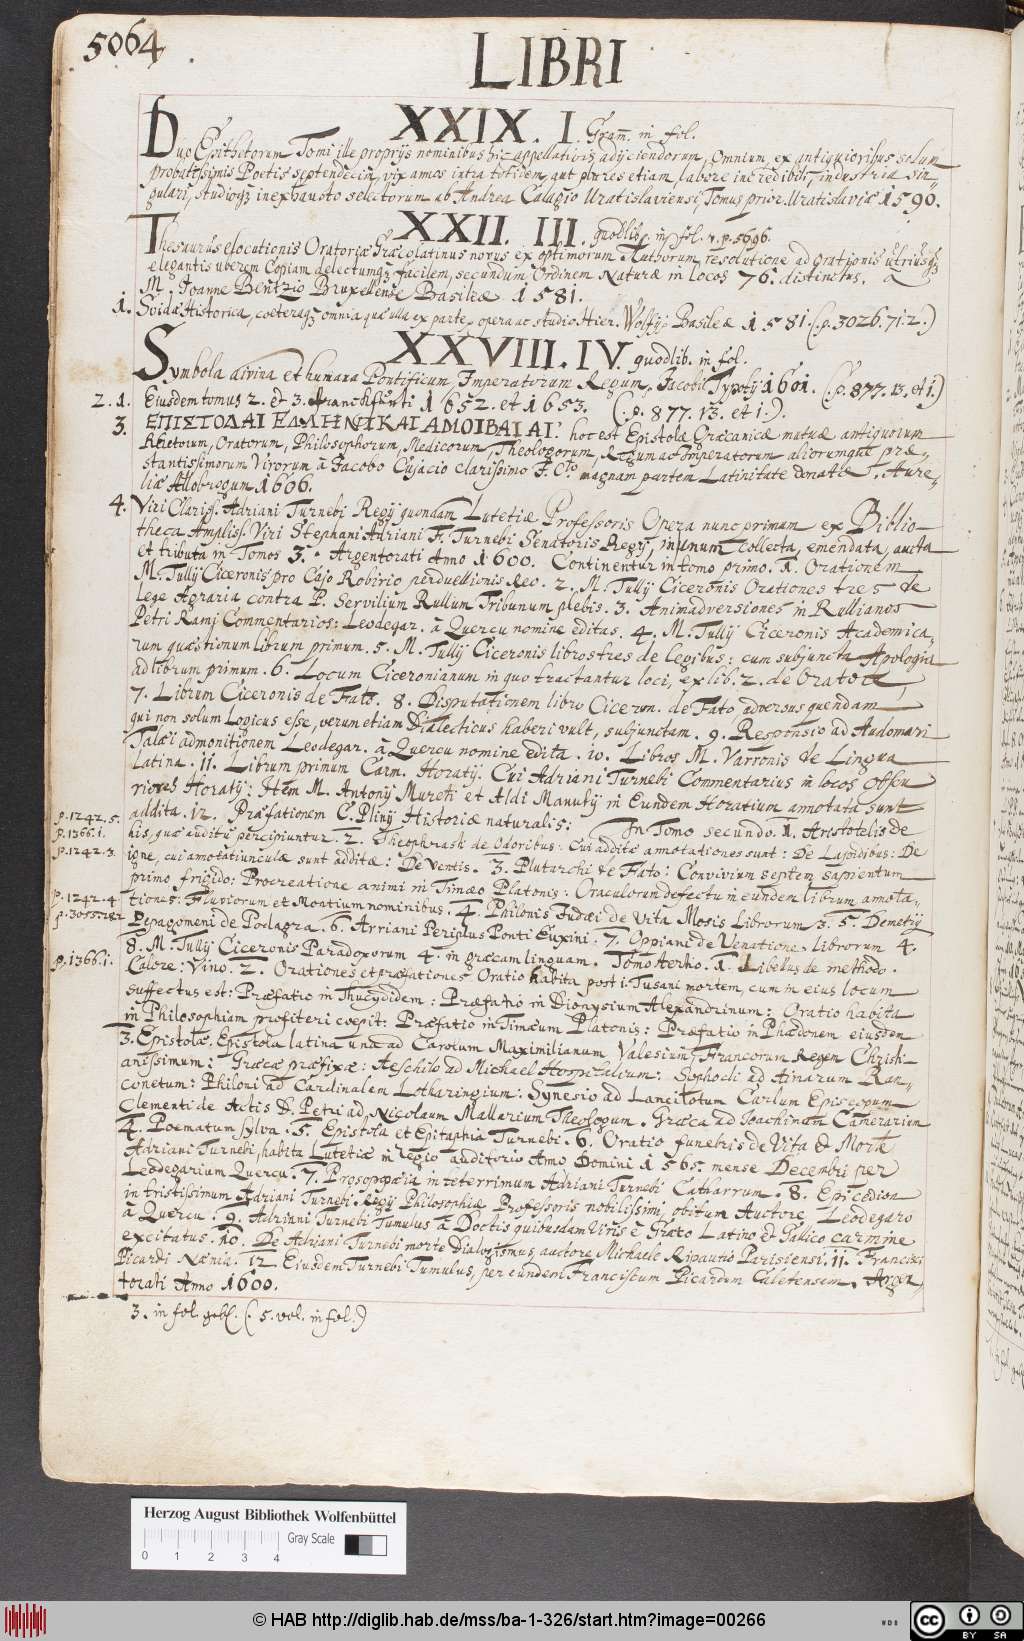 5064
LIBRI
XXIX. I. Gram̄. in fol.
Duo Epithetorum Tomi ille proprijs nominibus hic appellativis adijciendorum, omnium ex antiquioribus solum
probatissimis Poetis septendecim, vix annos intra totidem, aut plures etiam, labore incredibili, industria sin-
gulari, studioq; inexhausto selectorum ab Andrea Calagio Uratislaviensi, Tomus prior. Uratislaviæ 1590.
XXII. III. quodlib. in fol. v. p. 5696.
Thesaurus elocutionis Oratoriæ Græcolatinus novus ex optimorum Authorum resolutione ad orationis utriusq;
elegantis uberem Copiam delectumq; facilem, secundum Ordinem Naturæ in locos 76. distinctus. a
M. Joanne Bentzio Bruxellense Basileæ 1581.
1. Suidæ Historica, cæteraq; omnia quæ ulla ex parte, opera ac studio Hier. Wolfij. Basileæ 1581. (.p. 3026. 71. 2.)
XXVIII. IV. quodlib. in fol.
Symbola divina et humana Pontificum, Imperatorum Regum. Jacobi Typotij 1601. (.p. 877. 13. et 1.)
2. 1. Eiusdem tomus 2. et 3. Francofurti 1652. et 1653. (.p. 877. 13. et 1.).
3. ΕΠΙΣΤΟΛΑΙ ΕΛΛΗΝΙΚΑΙ ΑΜΟΙΒΑΙΑΙ. hoc est Epistolæ Græcanicæ mutuæ antiquorum
Rhetorum, Oratorum, Philosophorum, Medicorum, Theologorum, Regum ac Imperatorum aliorumque præ-
stantissimorum Virorum à Jacobo Cujacio clarissimo J. Cto. magnam partem Latinitate donatæ. Aure-
liæ Allobrogum 1606.
4. Viri Clariss. Adriani Turnebi Regij quondam Lutetiæ Professoris Opera nunc primum ex Biblio-
theca Ampliss. Viri Stephani Adriani F. Turnebi Senatoris Regij, in unum collecta, emendata, aucta
et tributa in Tomos 3. Argentorati Anno 1600. Continentur in tomo primo. 1. Orationem
M. Tullij Ciceronis pro Cajo Rabirio perduellionis Reo. 2. M. Tullij Ciceronis Orationes tres de
Lege Agraria contra P. Servilium Rullum Tribunum plebis. 3. Animadversiones in Rullianos
Petri Rami Commentarios: Leodegar. à Quercu nomine editas. 4. M. Tullij Ciceronis Academica-
rum quæstionum librum primum. 5. M. Tullij Ciceronis libros tres de legibus: cum subjuncta Apologia
ad librum primum. 6. Locum Ciceronianum in quo tractantur loci, ex lib. 2. de Oratore,
7. Librum Ciceronis de Fato. 8. Disputationem libro Ciceron. de Fato, adversus quendam
qui non solum Logicus esse, verum etiam Dialecticus haberi vult, subjunctam. 9. Responsio ad Audomari
Talæi admonitionem Leodegar. à Quercu nomine edita. 10. Libros M. Varronis de Lingua
Latina. 11. Librum primum Carm. Horatij. Cui Adriani Turnebi Commentarius in locos obscu-
riores Horatij: Item M. Antonij Mureti et Aldi Manutij in Eundem Horatium annotata sunt
addita. 12. Præfationem C. Plinij Historiæ naturalis: In Tomo secundo. 1. Aristotelis de
p. 1242. 5.
p. 1366. 1. his, quæ auditu percipiuntur. 2. Theophrasti de Odoribus: Cui additæ annotationes sunt: De Lapidibus: De
p. 1242. 3. igne, cui annotatiunculæ sunt additæ: De ventis. 3. Plutarchi de Fato: Convivium septem sapientum
primo frigido: Procreatione animi in Timæo Platonis: Oraculorum defectu in eundem librum annota-
p. 1242. 4 tiones: Fluviorum et Montium nominibus. 4. Philonis Judæi de Vita Mosis Librorum 3. 5. Demetrij
p. 3055. 282 Pepagomeni de Podagra. 6. Arriani Periplus Ponti Euxini. 7. Oppiani de Venatione. librorum 4.
8. M. Tullij Ciceronis Paradoxorum 4. in græcam linguam. Tomo tertio. 1. Libellus de methodo.
p. 1366. 1. Calore: Vino. 2. Orationes et præfationes Oratio habita post i. Tusani mortem, cum in eius locum
suffectus est: Præfatio in Thucydidem: Præfatio in Dionysium Alexandrinum: Oratio habita
in Philosophiam profiteri coepit: Præfatio in Timæum Platonis: Præfatio in Phædonem eiusdem
3. Epistolæ. Epistola latina una ad Carolum Maximilianum Valesium, Francorum Regem Christi-
anissimum: Græcæ præfixæ: Aeschilo ad Michael Hospitalium: Sophocli ad Ainarum Ran-
conetum: Philoni ad Cardinalem Lotharingium: Synesio ad Lancilotum Carlum Episcopum
Clementi de Actis D. Petri ad Nicolaum Mallarium Theologum. Græca ad Joachimum Camerarium
4. Poematum sylva. 5. Epistola et Epitaphia Turnebi. 6. Oratio funebris de Vita & Morte
Adriani Turnebi, habita Lutetiæ in regio auditorio Anno Domini 1565. mense Decembri per
Leodegarium Quercu. 7. Prosopopæia in teterrimum Adriani Turnebi Catharrum. 8. Epicedion
in tristissimum Adriani Turnebi Regij Philosophiæ Professoris nobilissimi, obitum Auctore Leodegaro
à Quercu. 9. Adriani Turnebi Tumulus à Doctis quibusdam Viris è Græco Latino et Gallico carmine
excitatus. 10. De Adriani Turnebi morte Dialogismus, auctore Michaele Ripautio Parisiensi. 11. Francisci
Picardi Nænia. 12 Eiusdem Turnebi Tumulus, per eundem Franciscum Picardum Caletensem. Argen-
torati Anno 1600.
3. in fol. gebl. (. 5. vol. in fol.)
Herzog August Bibliothek Wolfenbüttel
Gray Scale
0 1 2 3 4
© HAB http://diglib.hab.de/mss/ba-1-326/start.htm?image=00266
WDB
cc BY SA